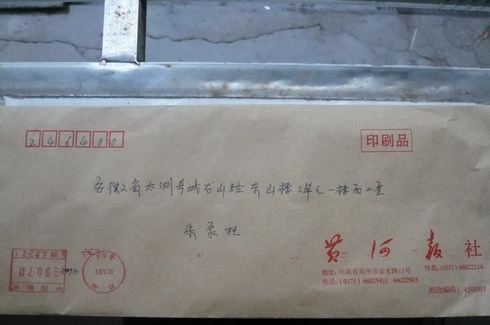 246400
印刷品
安徽省太湖县城龙山路东山楼三单元一楼西二室
朱
黄河报社
地址:河南省郑州市金水路11号 传真:(0371) 66022214
电话:(0371) 66023431 66022903
邮政编码:450003